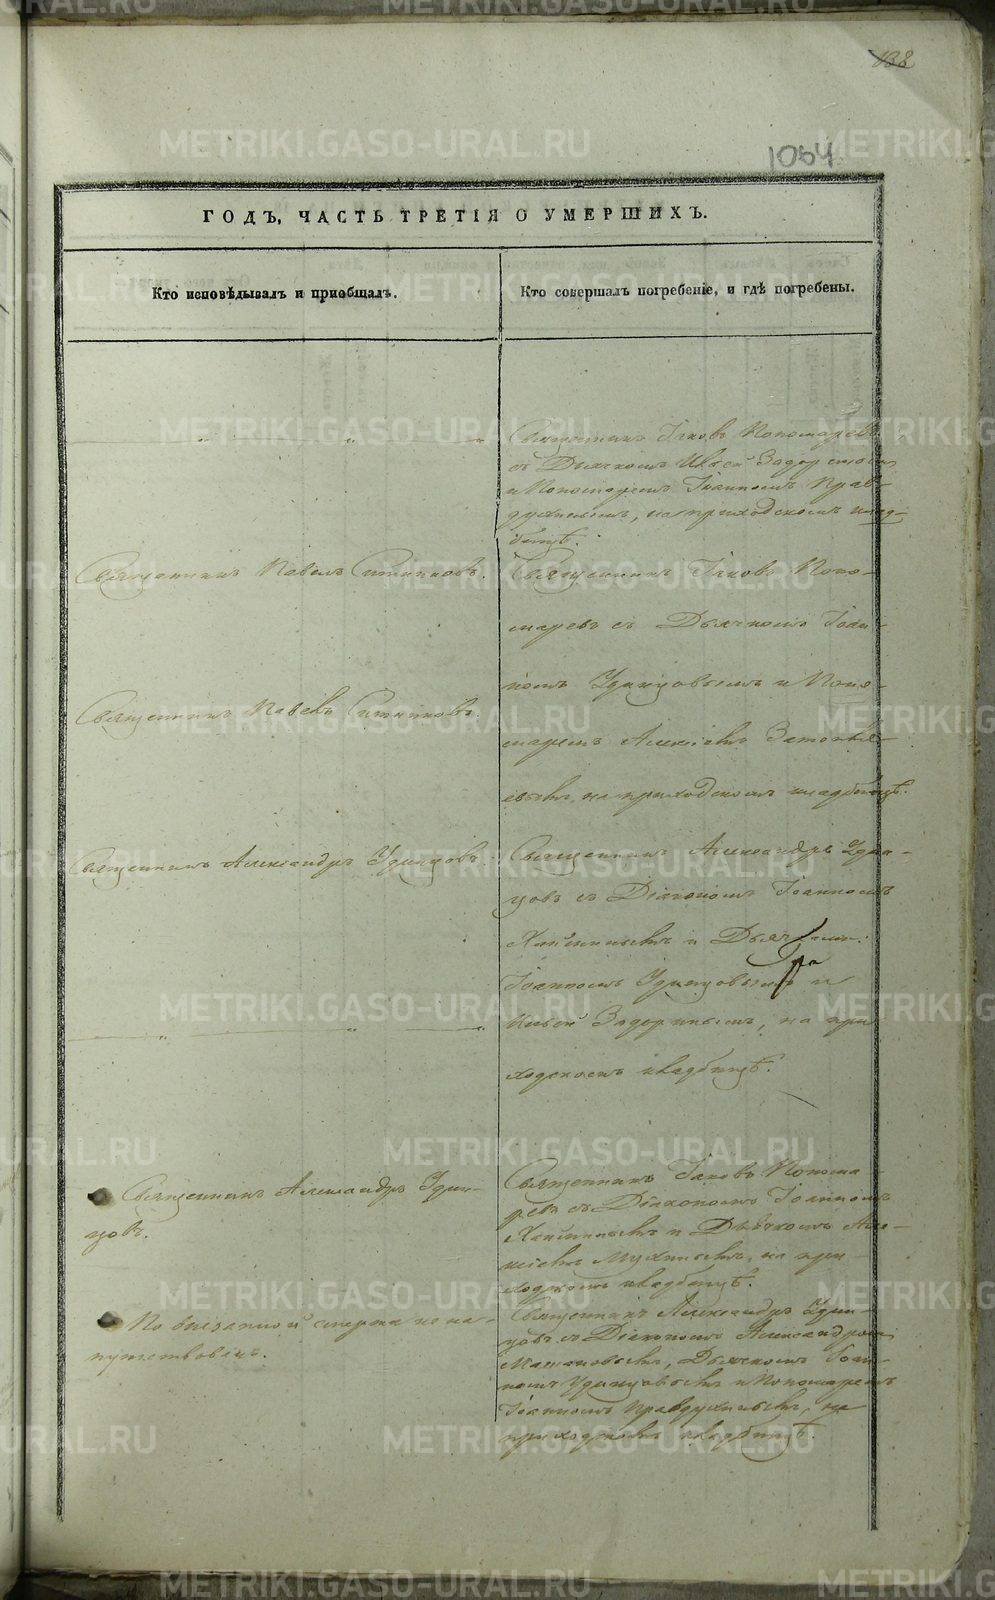 138
1054
ГОДЪ, ЧАСТЬ ТРЕТІЯ О УМЕРШИХЪ.
Кто исповѣдывалъ и приобщалъ.
Кто совершалъ погребеніе, и гдѣ погребены.
Священникъ Іаковъ Пономаревъ
съ Дьячкомъ
и Пономаремъ Іоанномъ Прав-
на приходскомъ клад-
бищѣ.
Священникъ Павелъ Ситниковъ.
Священникъ Іаковъ Поно-
маревъ съ Дьячкомъ Іоан-
номъ Удинцовымъ и Поно-
Священникъ Павелъ Ситниковъ
маремъ Алексіемъ
на приходскомъ кладбищѣ.
Священникъ Александръ Удинцовъ
Священникъ Александръ Удин-
цовъ съ Діакономъ Іоанномъ
и
Іоанномъ Удинцовымъ и
Ильей Задоринымъ, на при-
ходскомъ кладбищѣ.
Священникъ Александръ Удин-
цовъ.
Священникъ Іаковъ Понома-
ревъ съ Діакономъ Іоанномъ
и Дьячкомъ Але-
ксіемъ Мухинымъ, на при-
ходскомъ кладбищѣ.
По внезапной смерти не на-
путствованъ.
Священникъ Александръ Удин-
цовъ съ Діакономъ Александромъ
Дьячкомъ Іоан-
номъ Удинцовымъ и Пономаремъ
Іоанномъ Правдухинымъ, на
приходскомъ кладбищѣ.
METRIKI.GASO-URAL.RU